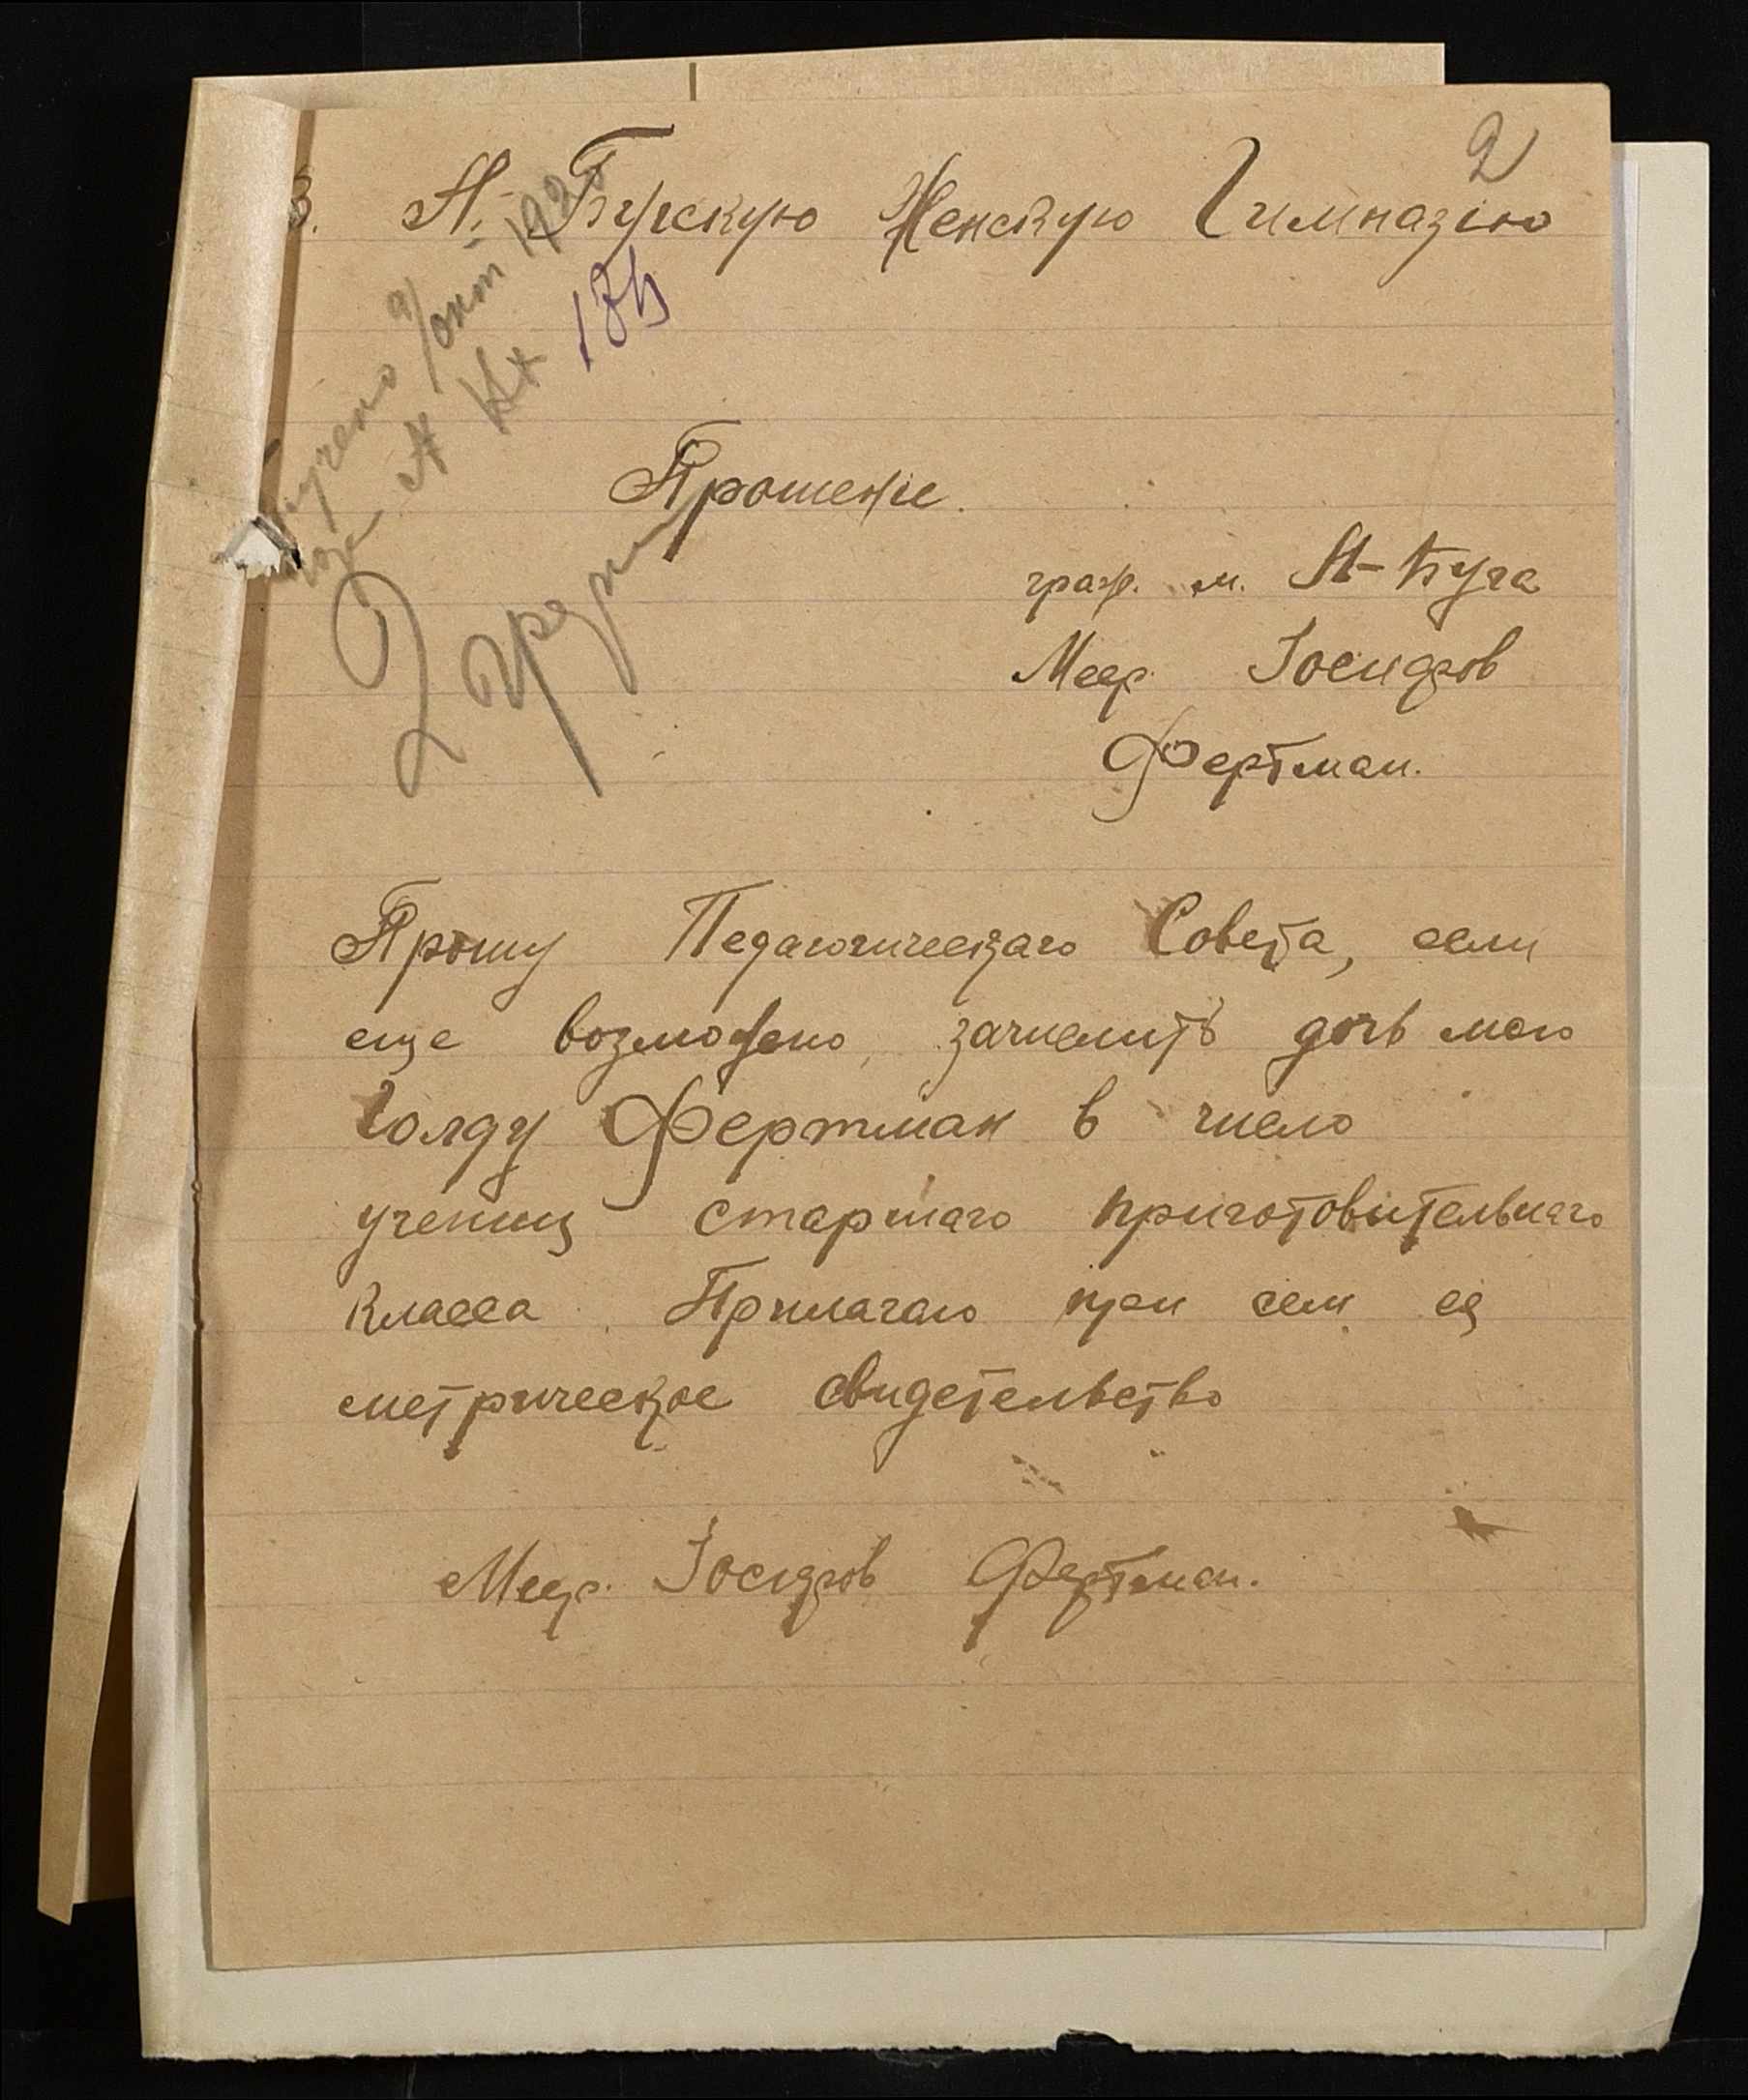 2
В. Н.-Бугскую Женскую Гимназію
9/окт 1920
Вх 134
Прошенiе.
граж. м. Н-Буга
Меер Іосифов
Фертман.
Прошу Педагогическаго Совета, если
еще возможно, зачислить дочь мою
Голду Фертман в число
учениц старшаго приготовительнаго
класса. Прилагаю при сем ея
метрическое свидетельство
Меер. Іосифов Фертман.